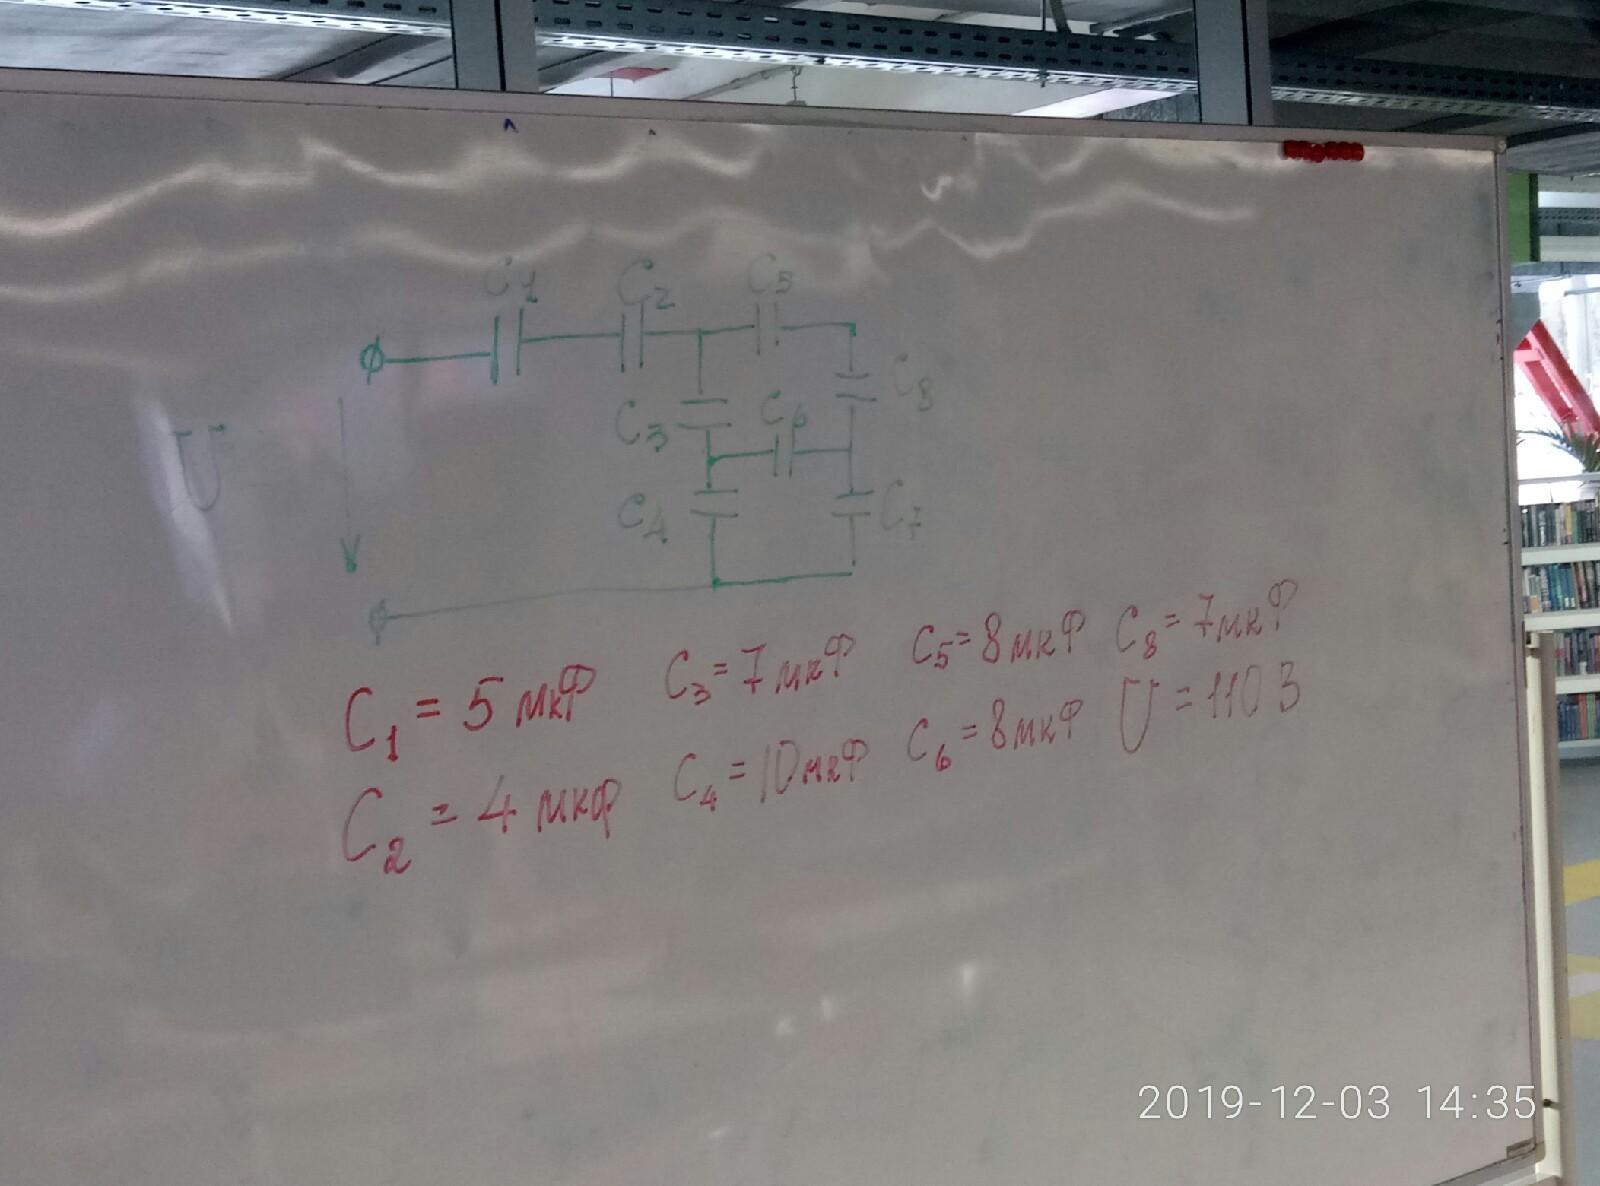 C1 C2 C5
C8
C3 C6
U
C4 C7
C1 = 5 мкФ C3 = 7 мкФ C5 = 8 мкФ C8 = 7 мкФ
C2 = 4 мкФ C4 = 10 мкФ C6 = 8 мкФ U = 110 В
2019-12-03 14:35